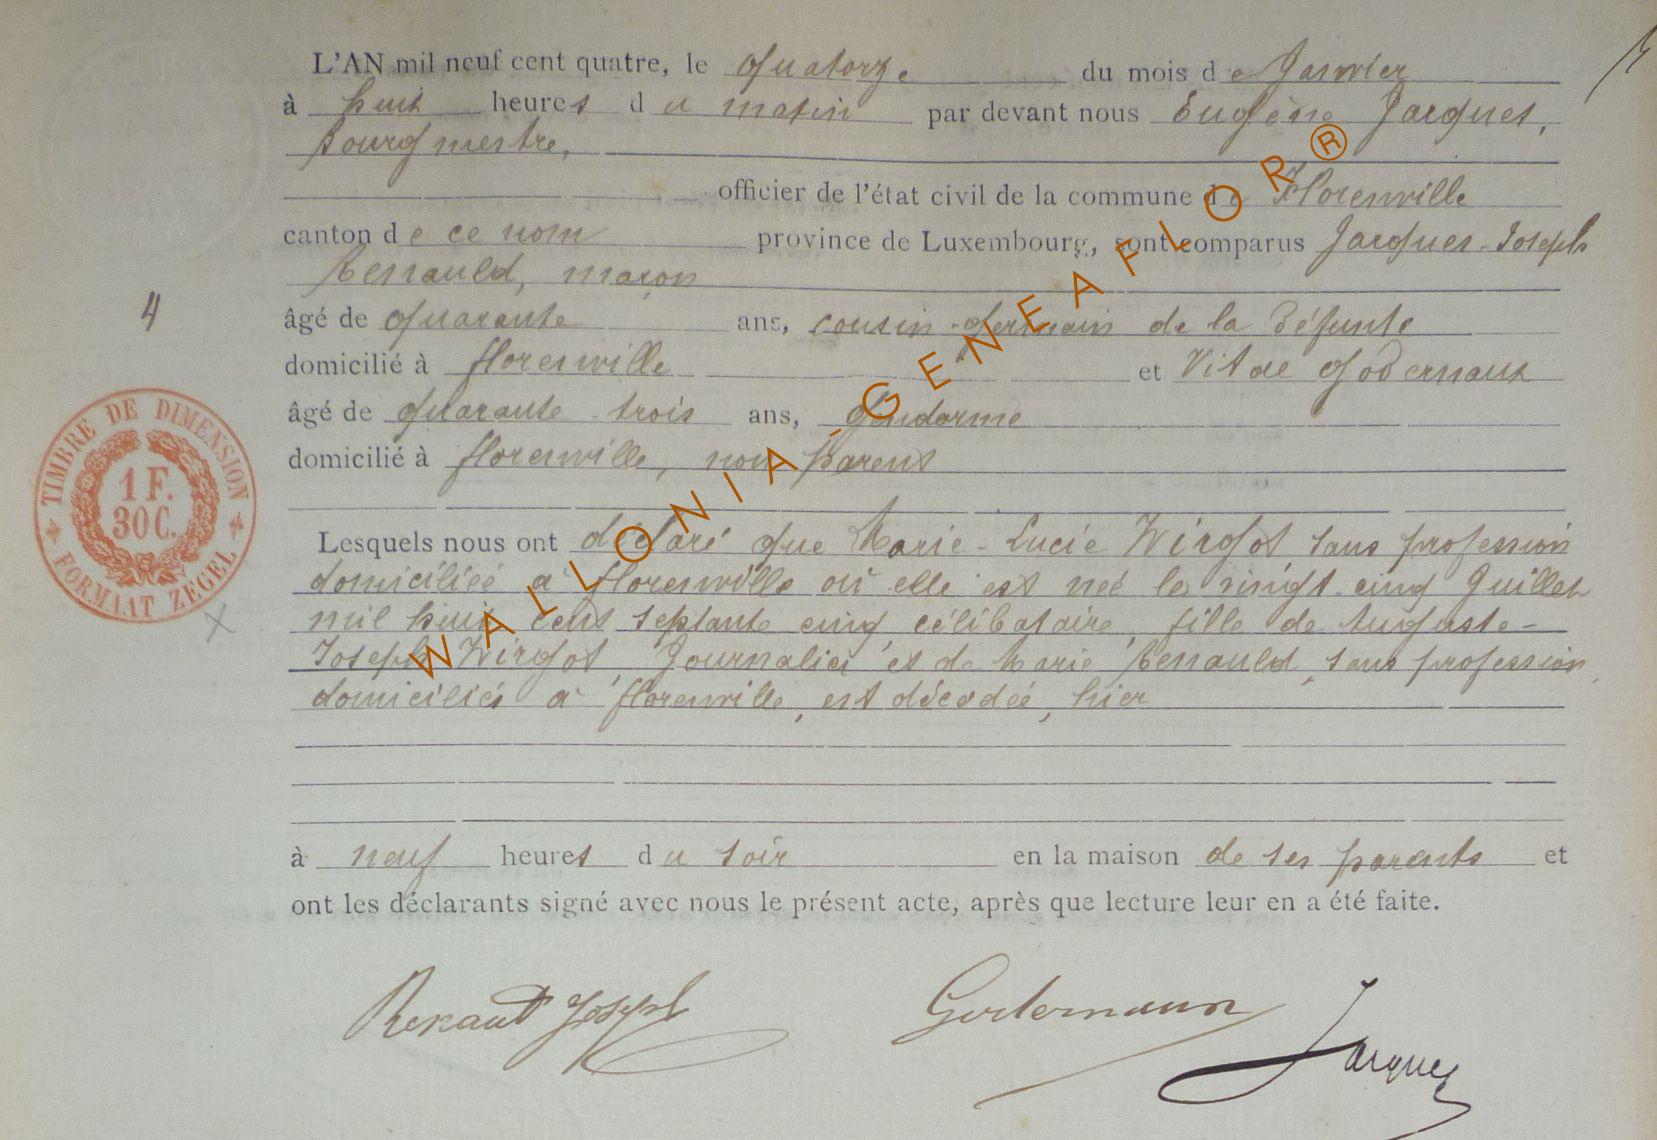 L'AN mil neuf cent quatre, le quatorze du mois de Janvier
à huit heures du matin par devant nous Eugène Jacques,
bourgmestre,
officier de l'état civil de la commune de Florenville
canton de ce nom province de Luxembourg, sont comparus Jacques-Joseph
Renauld, maçon
4
âgé de quarante ans, cousin-germain de la défunte
domicilié à florenville et Vital Godernaux
âgé de quarante-trois ans, gendarme
domicilié à florenville, non parent
TIMBRE DE DIMENSION
1 F.
30 C.
FORMAAT ZEGEL
Lesquels nous ont déclaré que Marie-Lucie Wirgot sans profession
domiciliée à florenville où elle est née le vingt-cinq Juillet
mil huit cent septante cinq, célibataire, fille de Auguste-
Joseph Wirgot, Journalier et de Marie Renauld, sans profession,
domiciliés à florenville, est décédée, hier
à neuf heures du soir en la maison de ses parents et
ont les déclarants signé avec nous le présent acte, après que lecture leur en a été faite.
Renauld Joseph
Jacques
WALLONIA-GENEAFLOR®